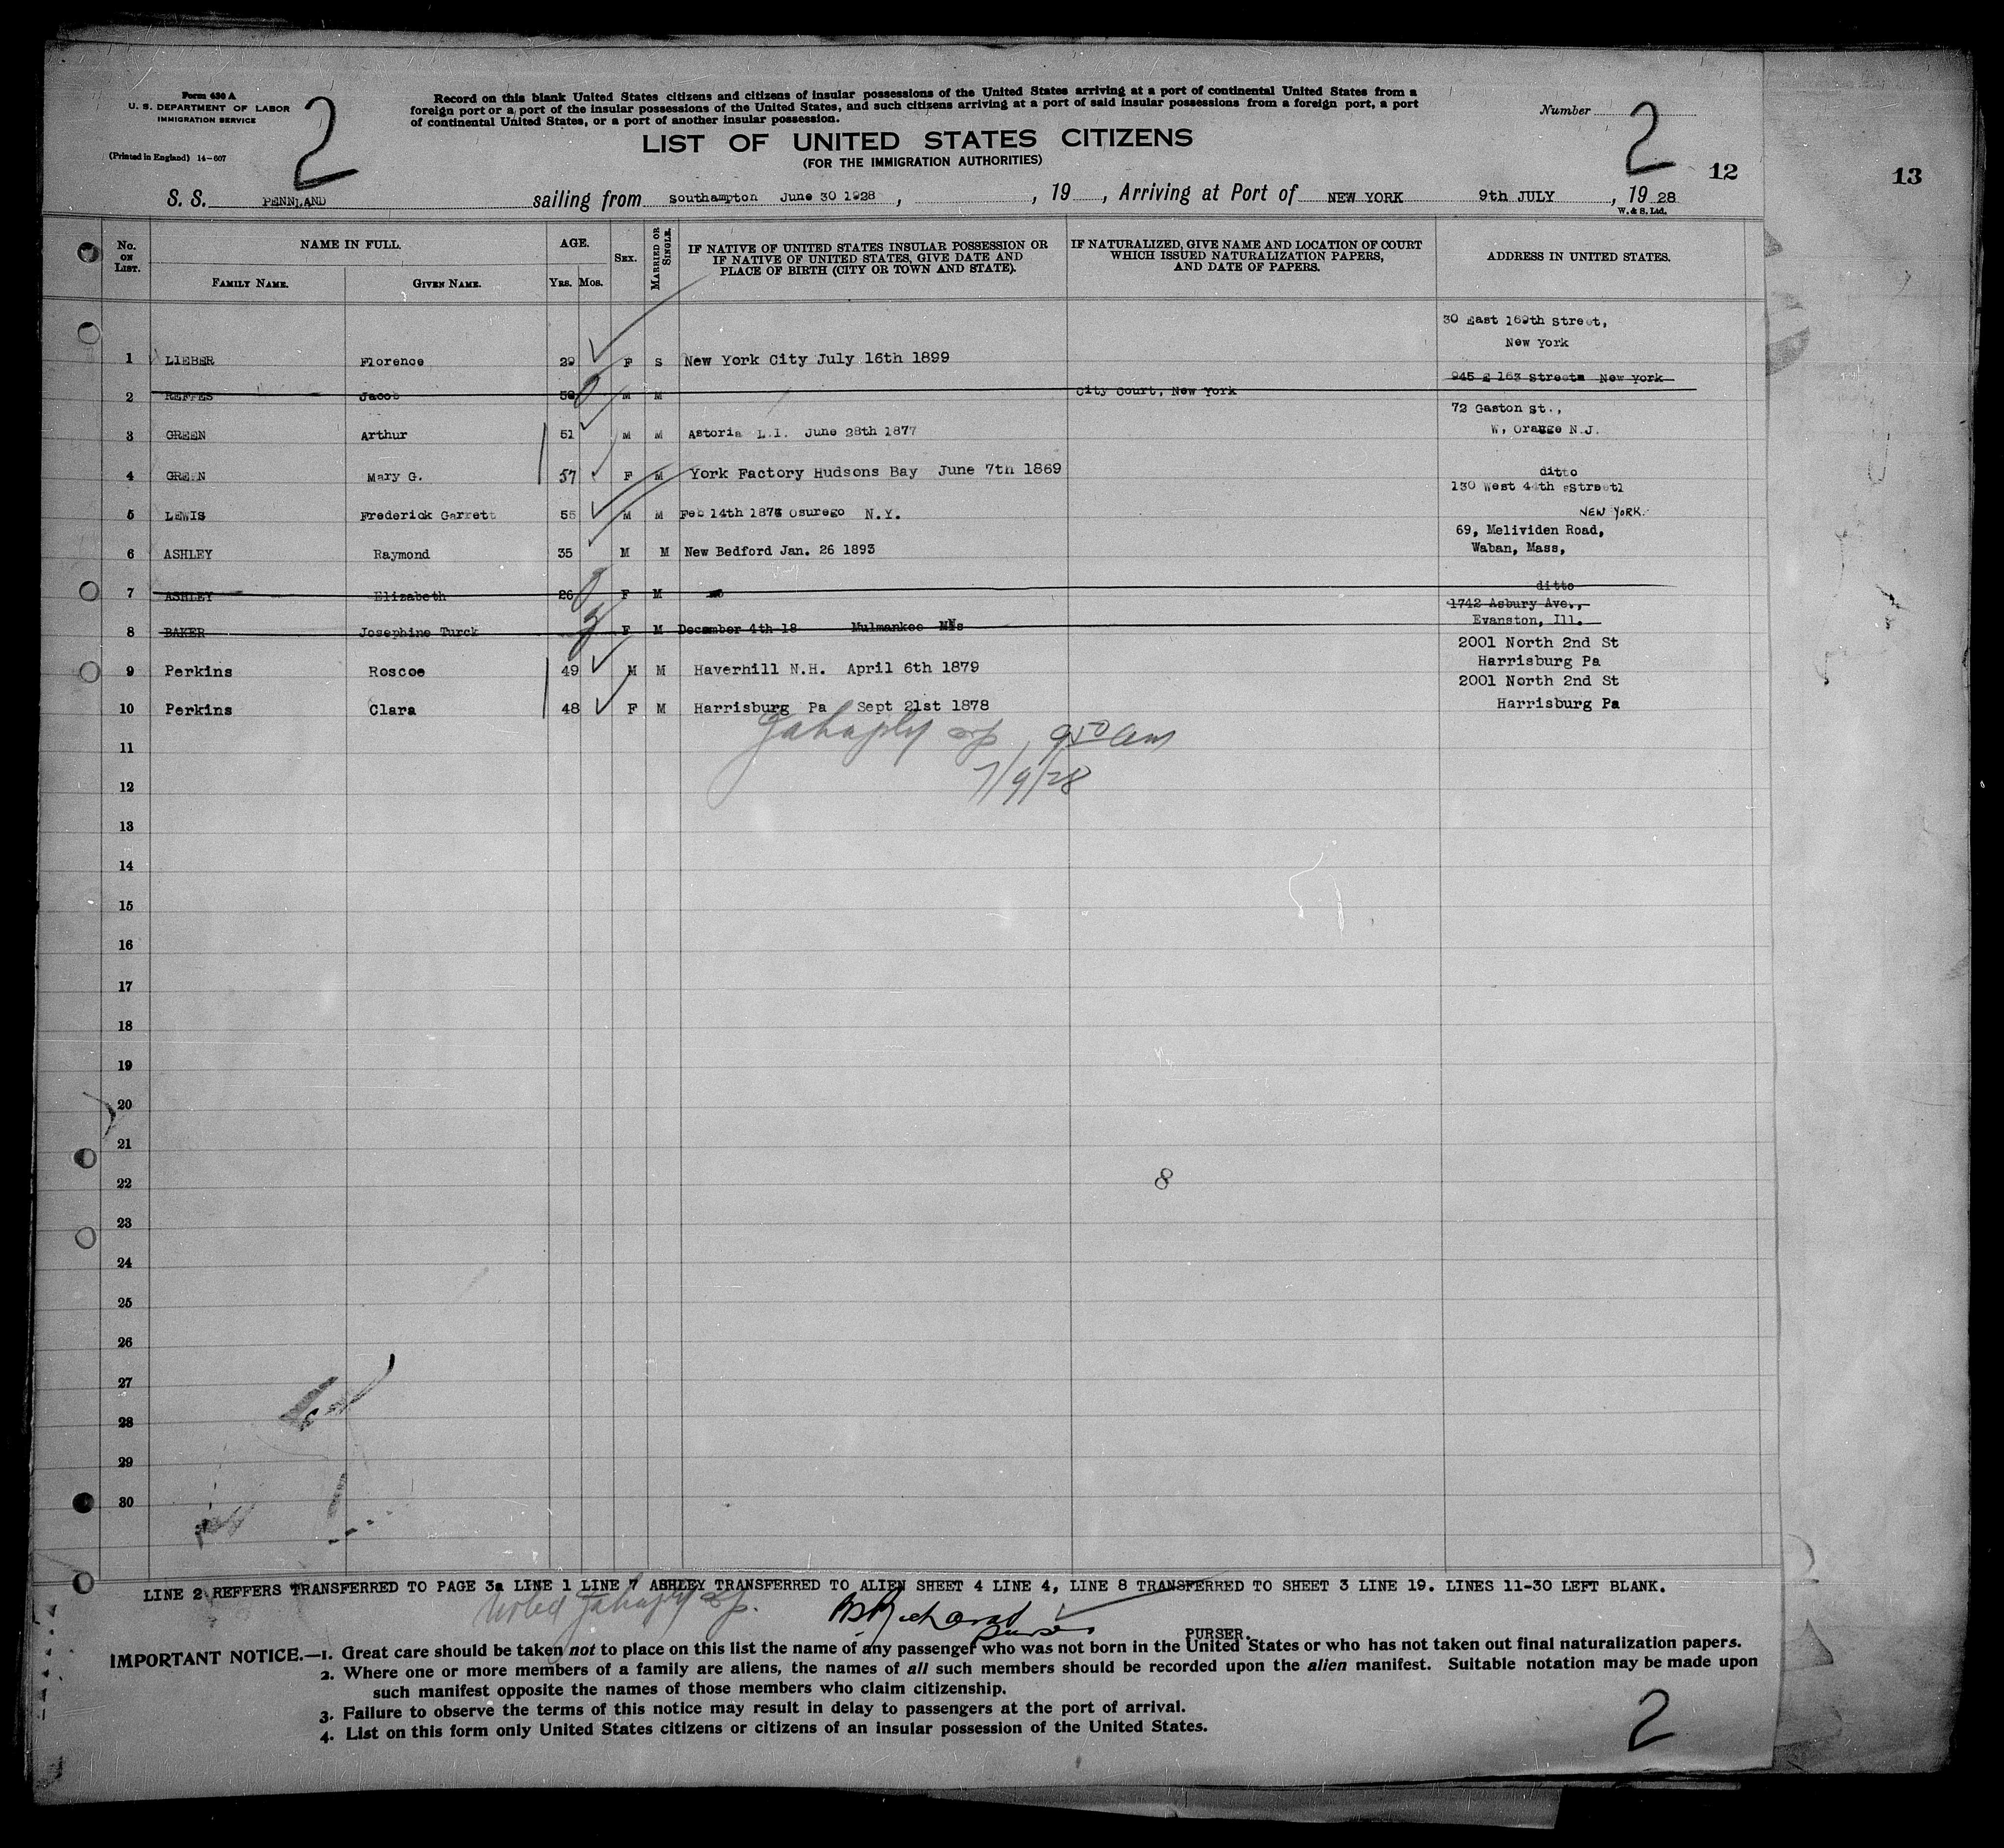 Form 630 A
U. S. DEPARTMENT OF LABOR
IMMIGRATION SERVICE
(Printed in England) 14-607
2
Record on this blank United States citizens and citizens of insular possessions of the United States arriving at a port of continental United States from a
foreign port or a port of the insular possessions of the United States, and such citizens arriving at a port of said insular possessions from a foreign port, a port
of continental United States, or a port of another insular possession.
LIST OF UNITED STATES CITIZENS
(FOR THE IMMIGRATION AUTHORITIES)
Number 2
12
13
S. S. PENNLAND sailing from Southampton June 30 1928, , 19 , Arriving at Port of NEW YORK 9th JULY, 19 28
W. & S. Ltd.
No. ON LIST. NAME IN FULL. AGE. SEX. MARRIED OR SINGLE. IF NATIVE OF UNITED STATES INSULAR POSSESSION OR IF NATIVE OF UNITED STATES, GIVE DATE AND PLACE OF BIRTH (CITY OR TOWN AND STATE). IF NATURALIZED, GIVE NAME AND LOCATION OF COURT WHICH ISSUED NATURALIZATION PAPERS, AND DATE OF PAPERS. ADDRESS IN UNITED STATES.
FAMILY NAME. GIVEN NAME. YRS. MOS.
30 East 169th Street,
New York
1 LIEBER Florence 29 F S New York City July 16th 1899
945 E 163 Street New York
2 REFFES Jacob M M City Court, New York
72 Gaston St.,
3 GREEN Arthur 51 M M Astoria L.I. June 28th 1877 W. Orange N.J.
4 GREEN Mary G. 57 F M York Factory Hudsons Bay June 7th 1869 ditto
130 West 44th Street
5 LEWIS Frederick Garrett 55 M M Feb 14th 1873 Osurego N.Y. NEW YORK.
69, Melividen Road,
6 ASHLEY Raymond 35 M M New Bedford Jan. 26 1893 Waban, Mass,
7 ASHLEY Elizabeth 26 F M ditto
1742 Asbury Ave.,
8 BAKER Josephine Turck F M December 4th 18 Mulmankee Evanston, Ill.
2001 North 2nd St
9 Perkins Roscoe 49 M M Haverhill N.H. April 6th 1879 Harrisburg Pa
2001 North 2nd St
10 Perkins Clara 48 F M Harrisburg Pa Sept 21st 1878 Harrisburg Pa
9 50 am
11
7/9/28
12
13
14
15
16
17
18
19
20
21
22 8
23
24
25
26
27
28
29
30
LINE 2 REFFERS TRANSFERRED TO PAGE 3a LINE 1 LINE 7 ASHLEY TRANSFERRED TO ALIEN SHEET 4 LINE 4, LINE 8 TRANSFERRED TO SHEET 3 LINE 19. LINES 11-30 LEFT BLANK.
Noted
Purser
PURSER.
IMPORTANT NOTICE.—1. Great care should be taken not to place on this list the name of any passenger who was not born in the United States or who has not taken out final naturalization papers.
2. Where one or more members of a family are aliens, the names of all such members should be recorded upon the alien manifest. Suitable notation may be made upon
such manifest opposite the names of those members who claim citizenship.
3. Failure to observe the terms of this notice may result in delay to passengers at the port of arrival.
4. List on this form only United States citizens or citizens of an insular possession of the United States.
2